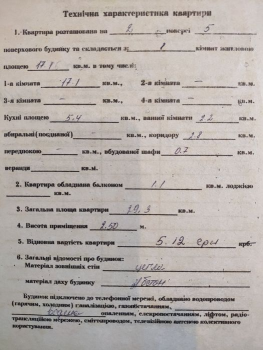 Технічна характеристика квартири
1. Квартира розташована на 2 поверсі 5
поверхового будинку та складається з 1 кімнат житловою
площею 17.1 кв.м. в тому числі:
1-а кімната 17.1 кв.м., 2-а кімната — кв.м.,
3-я кімната — кв.м., 4-а кімната — кв.м.,
Кухні площею 5.4 кв.м., ванної кімнати 2.2 кв.м.,
вбиральні(поєднаної) — кв.м., коридору 2.8 кв.м.,
передпокою — кв.м., вбудованої шафи 0.7 кв.м.,
веранди кв.м.
2. Квартира обладнана балконом 1.1 кв.м. лоджією
кв.м.
3. Загальна площа квартири 29.3 кв.м.
4. Висота приміщення 2.50 м.
5. Відновна вартість квартири 5.12 грн крб.
6. Загальні відомості про будинок:
Матеріал зовнішніх стін цегла
матеріал даху будинку
Будинок підключено до телефонної мережі, обладнано водопроводом
(гарячим, холодним) каналізацією, газопостачанням,
опаленням, електропостачанням, ліфтом, радіо-
трансляційною мережею, сміттєпроводом, телевізійною антеною колективного
користування.